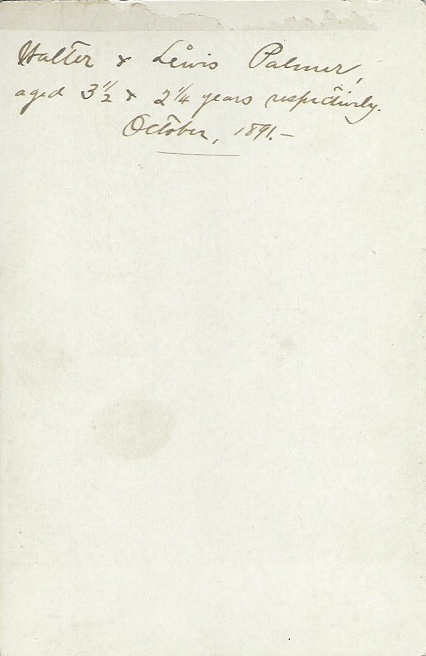 Walter & Lewis Palmer,
aged 3 1/2 & 2 1/4 years respectively.
October, 1891.-